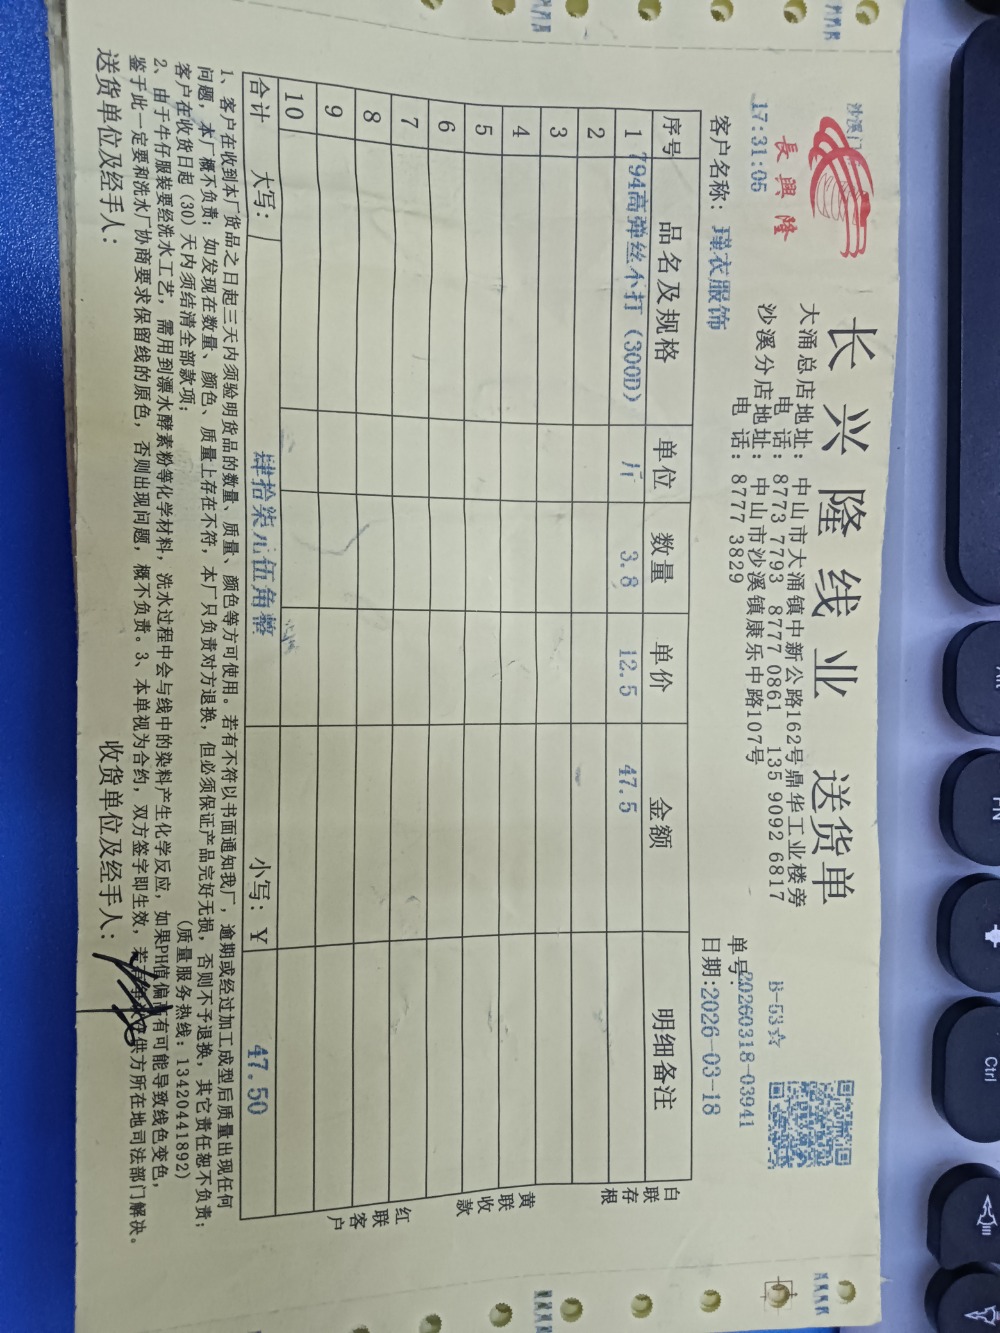 长兴隆线业 送货单
沙溪门
長興隆
17:31:05
大涌总店地址：中山市大涌镇中新公路162号鼎华工业楼旁
电 话：8773 7793 8777 0861 135 9092 6817
沙溪分店地址：中山市沙溪镇康乐中路107号
电 话：8777 3829
B-53☆
单号:20260318-03941
客户名称：瑾衣服饰
日期:2026-03-18
序号 品名及规格 单位 数量 单价 金额 明细备注
1 794高弹丝不打（300D） 斤 3.8 12.5 47.5
2
3
4
5
6
7
8
9
10
合计 大写： 肆拾柒元伍角整 小写：￥ 47.50
白联存根
黄联收款
红联客户
1、客户在收到本厂货品之日起三天内须验明货品的数量、质量、颜色等方可使用。若有不符以书面通知我厂，逾期或经过加工成型后质量出现任何
问题，本厂概不负责；如发现在数量、颜色、质量上存在不符，本厂只负责对方退换，但必须保证产品完好无损，否则不予退换，其它责任恕不负责；
客户在收货日起(30)天内须结清全部款项； (质量服务热线：13420441892)
2、由于牛仔服装要经洗水工艺，需用到漂水酵素粉等化学材料，洗水过程中会与线中的染料产生化学反应，如果PH值偏高有可能导致线色变色，
鉴于此一定要和洗水厂协商要求保留线的原色，否则出现问题，概不负责。3、本单视为合约，双方签字即生效，若有 供方所在地司法部门解决。
送货单位及经手人： 收货单位及经手人：